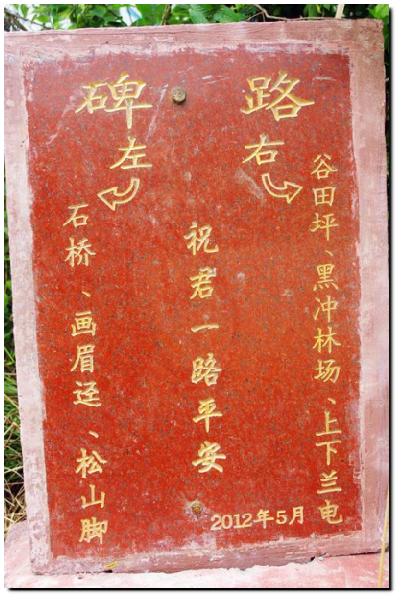 路碑
右
谷田坪、黑冲林场、上下兰电
祝君一路平安
左
石桥、画眉迳、松山脚
2012年5月